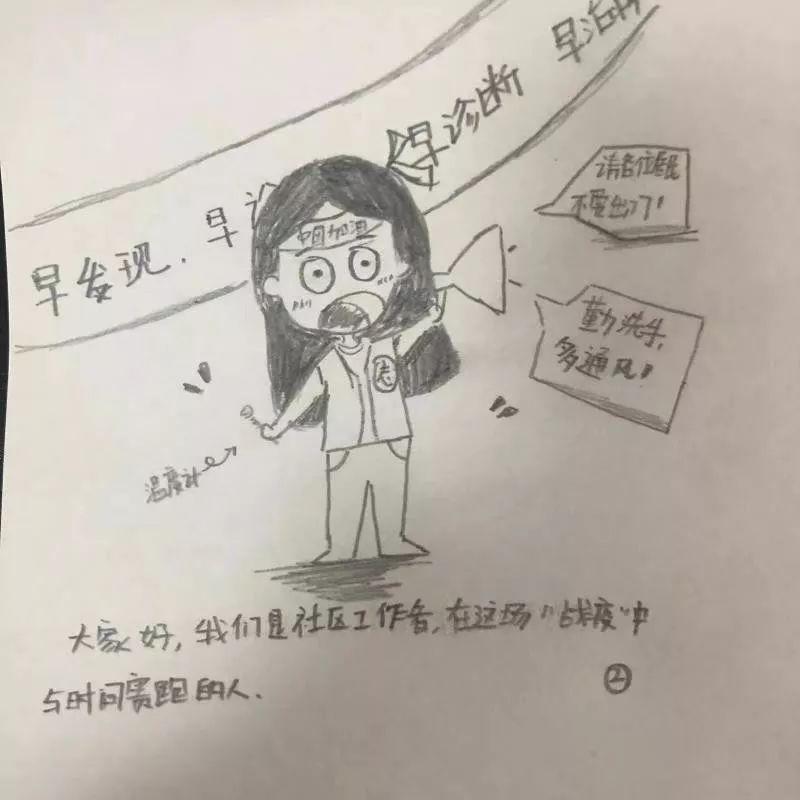 早发现. 早诊断 早治
中国加油
请各位居民
不要出门!
勤洗手,
多通风!
志
温度计
大家好, 我们是社区工作者, 在这场"战疫"中
与时间赛跑的人.
②